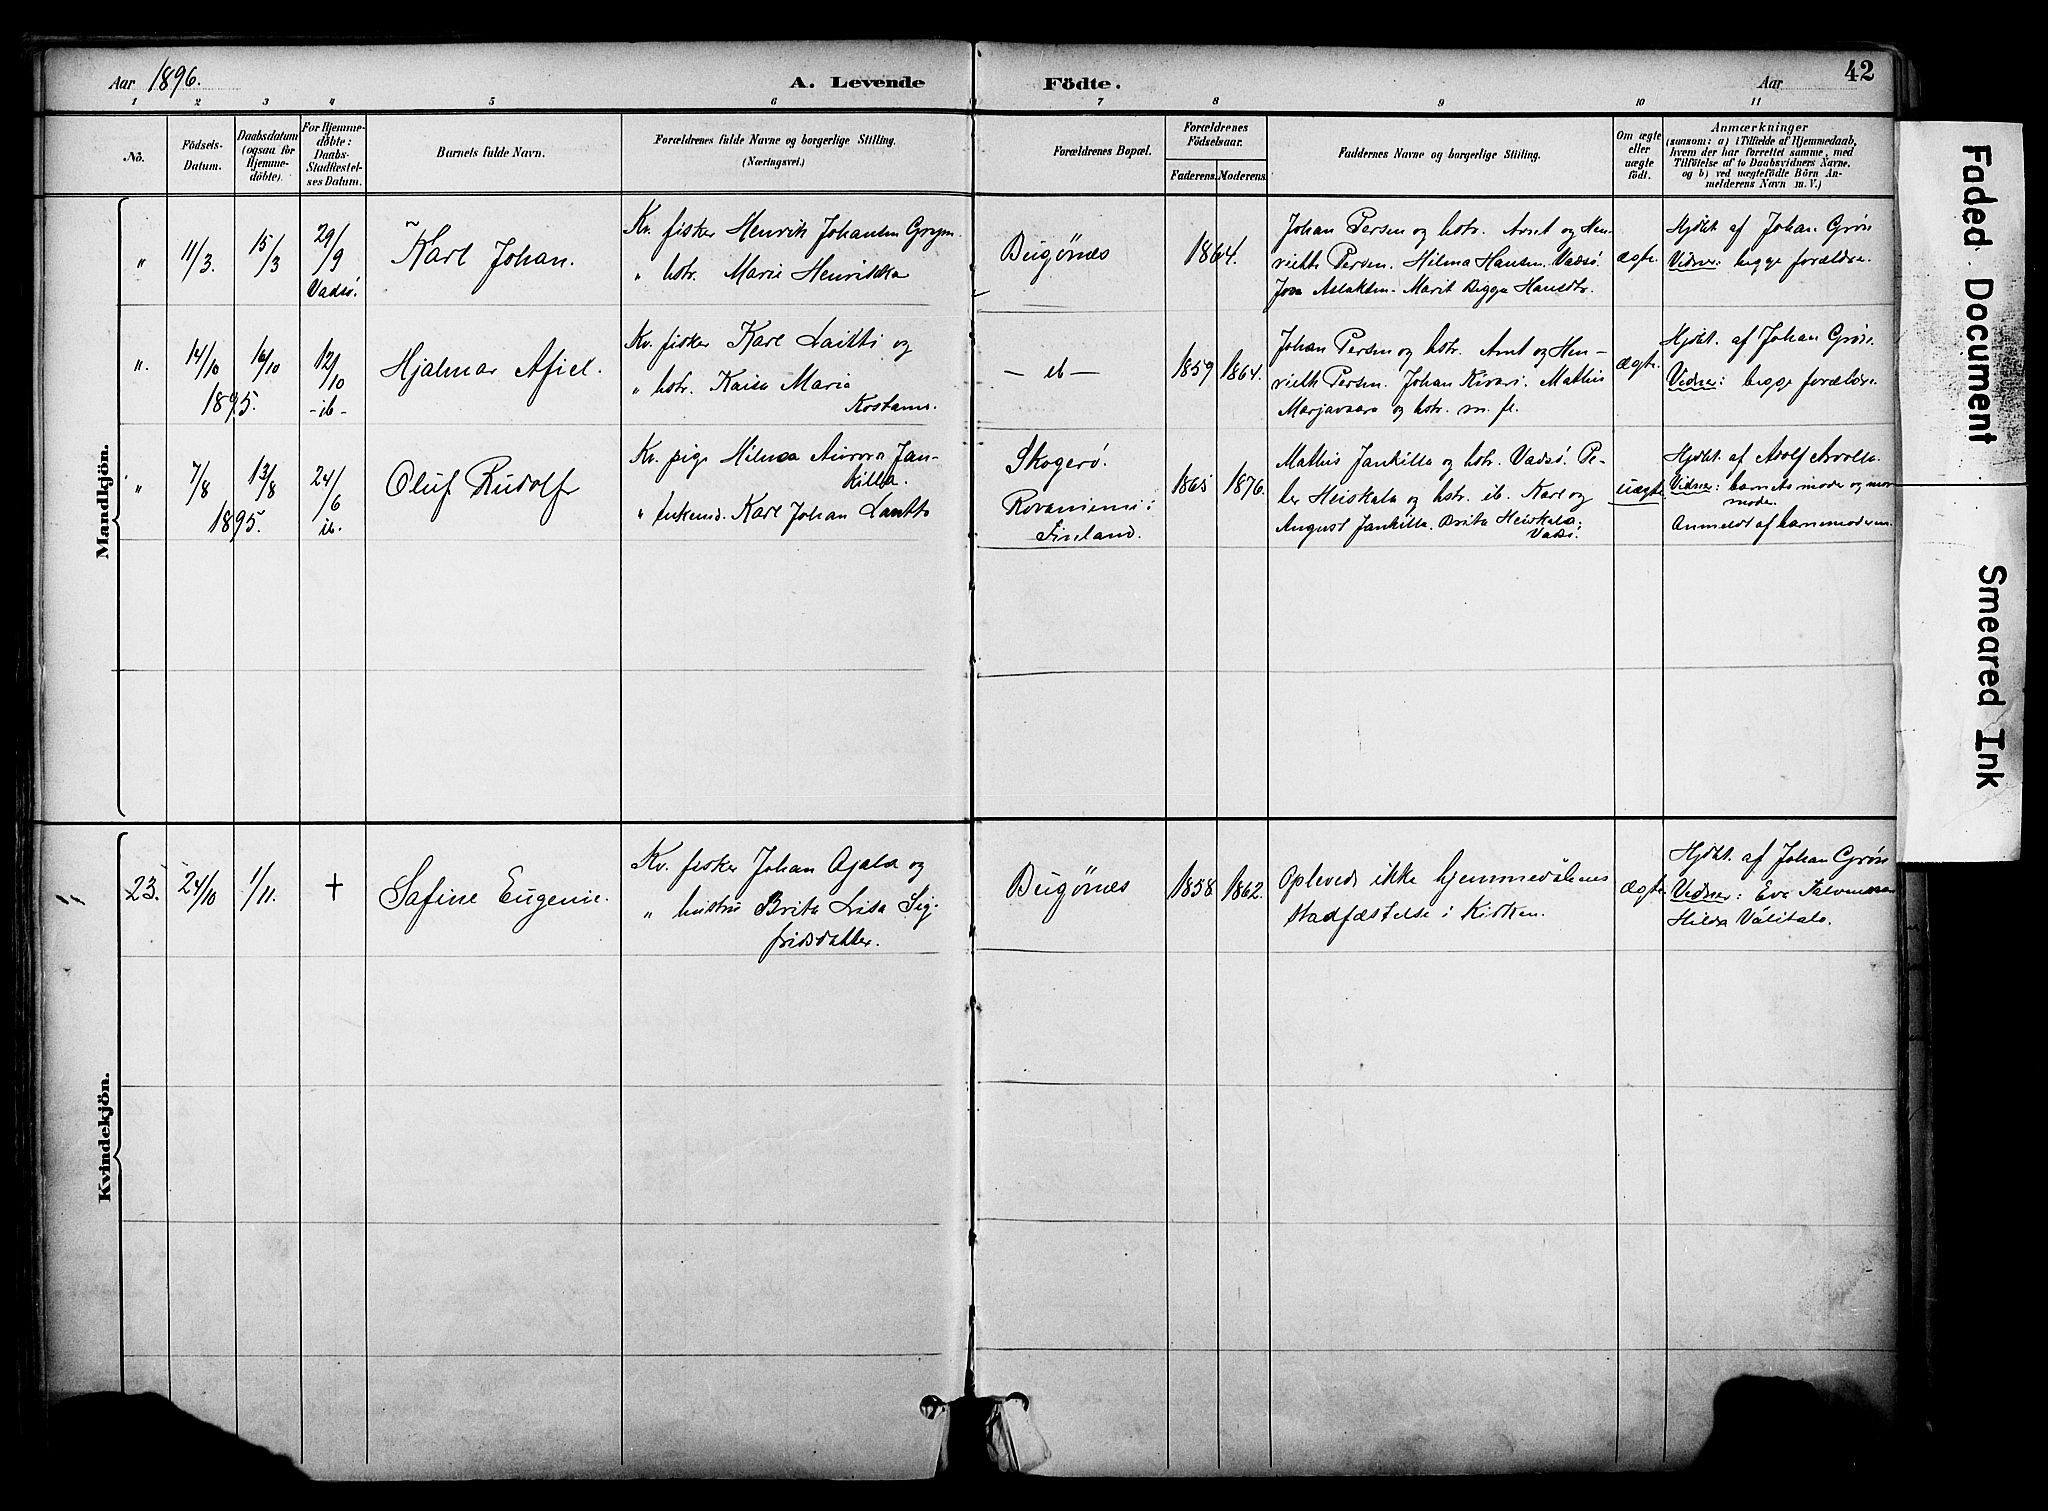 Aar 1896. A. Levende Födte. Aar 42
1 2 3 4 5 6 7 8 9 10 11
No. Födsels-Datum. Daabsdatum (ogsaa for Hjemme-döbte). For Hjemme-döbte: Daabs-Stadfæstel-ses Datum. Barnets fulde Navn. Forældrenes fulde Navne og borgerlige Stilling. (Næringsvei.) Forældrenes Bopæl. Forældrenes Födselsaar. Faderens. Moderens. Faddernes Navne og borgerlige Stilling. Om ægte eller uægte födt. Anmærkninger
(saasom: a) i Tilfælde af Hjemmedaab,
hvem der har forrettet samme, med
Tilföielse af to Daabsvidners Navne,
og b) ved uægtefödte Börn An-
melderens Navn m. V.)
Mandkjön.
" 11/3. 15/3 29/9 Vadsö. Karl Johan.
Kv. fisker Henrik Johansen
" hstr. Marie Henrikka
Bugönes 1864.
Johan Persen og hstr. Arnt og Hen-
riette Persen. Hilma Hansen. Vadsö.
Aslaksen. Marit Bigga Hansdtr.
ægte.
Hjdöbt. af Johan Grön
Vidner: begge forældre.
". 14/10 16/10 1895. 12/10 -ib- Hjalmar Afiel.
Kv. fisker Karl Laitti og
" hstr. Kaisa Maria
Kostamo.
- ib - 1859 1864.
Johan Persen og hstr. Arnt og Hen-
riette Persen. Johan Kivari. Mathis
Marjavaara og hstr. m. fl.
ægte.
Hjdöbt. af Johan Grön.
Vidner: begge forældre
" 7/8 13/8 1895. 24/6 ib. Oluf Rudolf
Kv. pige Hilma Aurora Jan-
killa.
" Karl Johan Lantto
Skogerö.
Rovaniemi i
Finland.
1865 1876.
Mathis Jankilla og hstr. Vadsö. Pe-
ter Heiskala og hstr. ib. Karl og
August Jankilla. Brita Heiskala,
Vadsö.
uægte
Hjdöbt. af Adolf
Vidner: barnets moder og mor-
moder.
Anmeldt af barnemoderen.
Kvindekjön.
23. 24/10 1/11. + Safine Eugenie.
Kv. fisker Johan Ojala og
" hustru Brita Lisa Sig-
fridsdatter.
Bugönes 1858 1862.
Oplevede ikke hjemmedåbens
stadfæstelse i Kirken.
ægte
Hjdöbt. af Johan Grön
Vidner: Eva
Hilda Välitalo.
Faded Document Smeared Ink